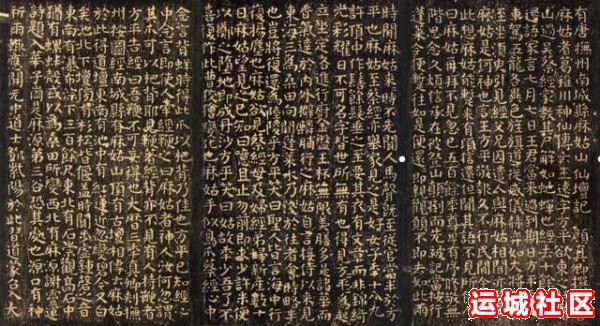 有唐撫州南城縣麻姑山仙壇記 顏真卿撰并書
麻姑者葛稚川神仙傳云王遠字方平欲東之括蒼
山過吳蔡經家教其尸解如蛇蟬也經去十餘年忽
還語家言七月七日王君當來過到期日方平乘羽
車駕五龍各異色旌旗導從威儀赫弈如大將也既
至坐須臾引見經父兄因遣人與麻姑相聞亦莫知
麻姑是何神也言王方平敬報久不行民間今來在
此想麻姑能暫來有頃信還但聞其語不見所使人
曰麻姑再拜不見忽已五百餘年尊卑有序脩敬無
階思念久煩信承在彼登山顛倒而先被記當按行
蓬萊今便暫往如是便還還即親觀願不即去如此兩
時間麻姑來來時不先聞人馬聲既至從官當半於方
平也麻姑至蔡經亦舉家見之是好女子年十八九
許頂中作髻餘髮垂之至要其衣有文章而非錦綺
光彩耀日不可名字皆世所無有也得見方平方平為
起立坐定各進行廚金盤玉杯無限美膳多是諸華而
香氣達於內外擗麟脯行之麻姑自言接待以來見
東海三為桑田向間蓬萊水乃淺於往者會時略半
也豈將復還為陸陵乎方平笑曰聖人皆言海中行
復揚塵也麻姑欲見蔡經母及婦經弟婦新產數十
日麻姑望見之已知曰噫且止勿前即求少許米便
以擲之墮地即成丹沙方平笑曰姑故年少吾了不
喜復作此曹狡獪變化也麻姑手似鳥爪蔡經心中
念言背癢時得此爪以杷背乃佳也方平已知經心
中念言即使人牽經鞭之曰麻姑者神人汝何忽謂
其爪可以杷背耶見鞭著經背亦不見有人持鞭者
方平告經曰吾鞭不可妄得也大曆三年真卿刺撫
州按圖經南城縣有麻姑山頂有古壇相傳云麻姑
於此得道壇東南有池中有紅蓮近忽變碧今又白
矣池北下壇傍有杉松皆偃蓋時聞步虛鍾磬之音
東南有瀑布淙下三百餘尺東北有石崇觀高石中
猶有螺蚌殼或以為桑田所變西北有麻源謝靈運
詩題入華子崗是麻源第三谷恐其處也源口有神
祈雨輒應開元中道士鄧紫陽於此習道蒙召入大
运城社区
www.0359.com